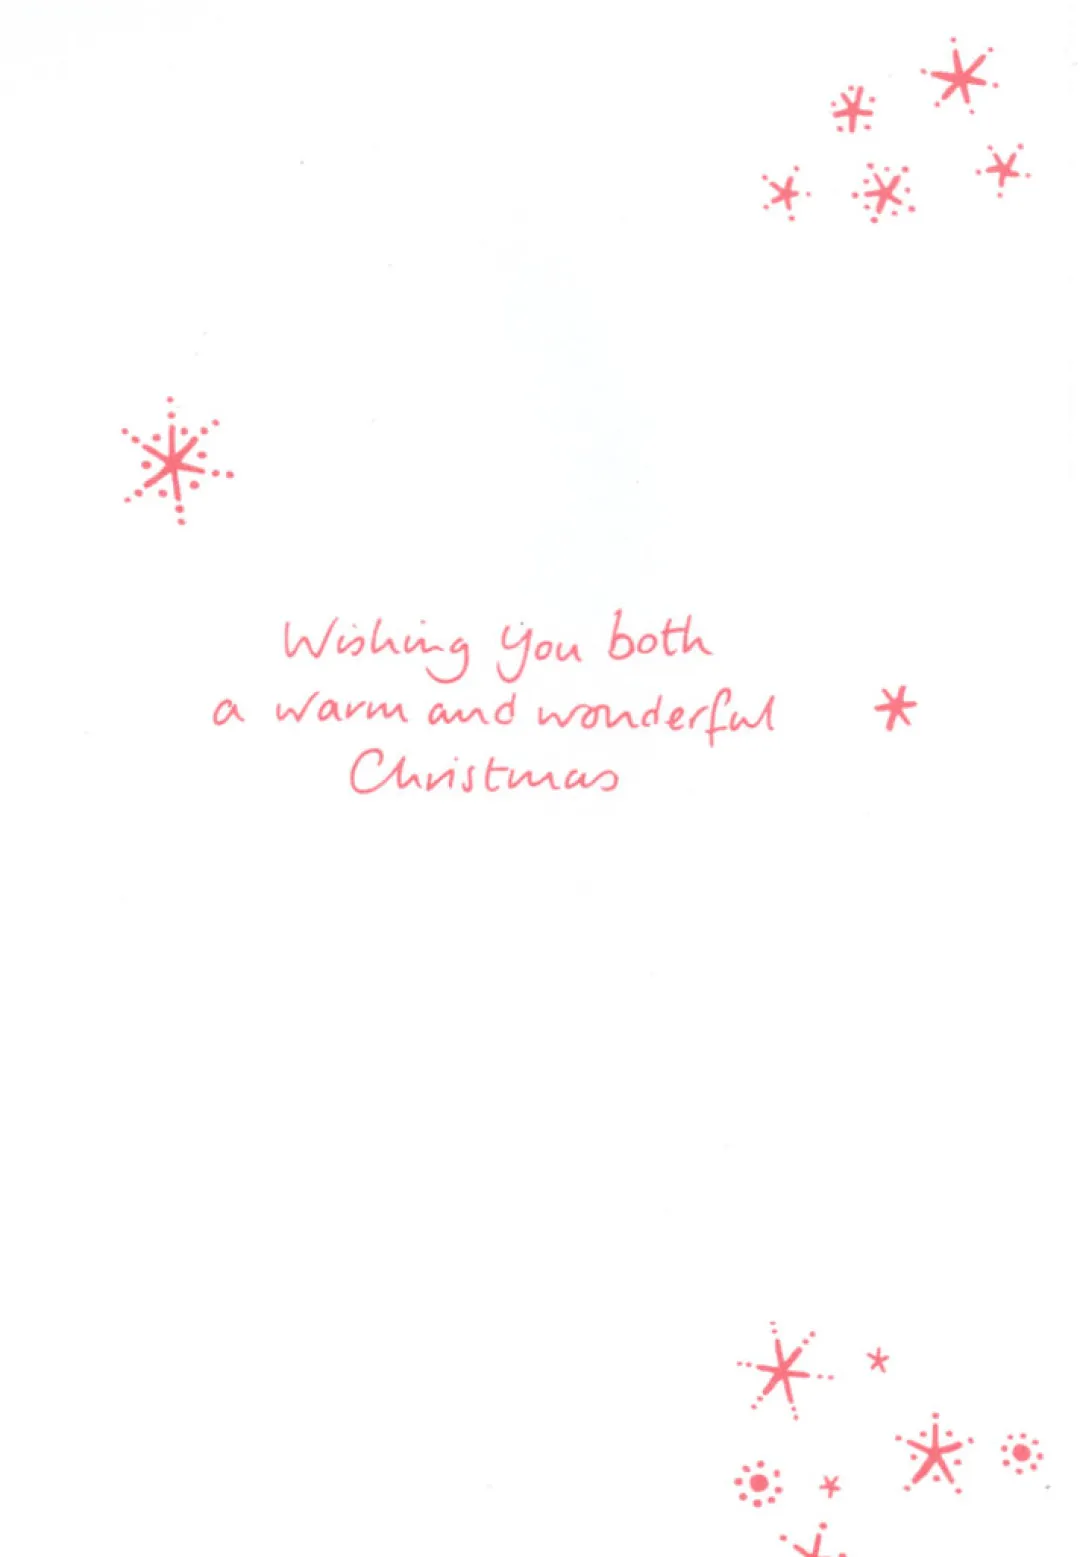 Wishing you both
a warm and wonderful
Christmas